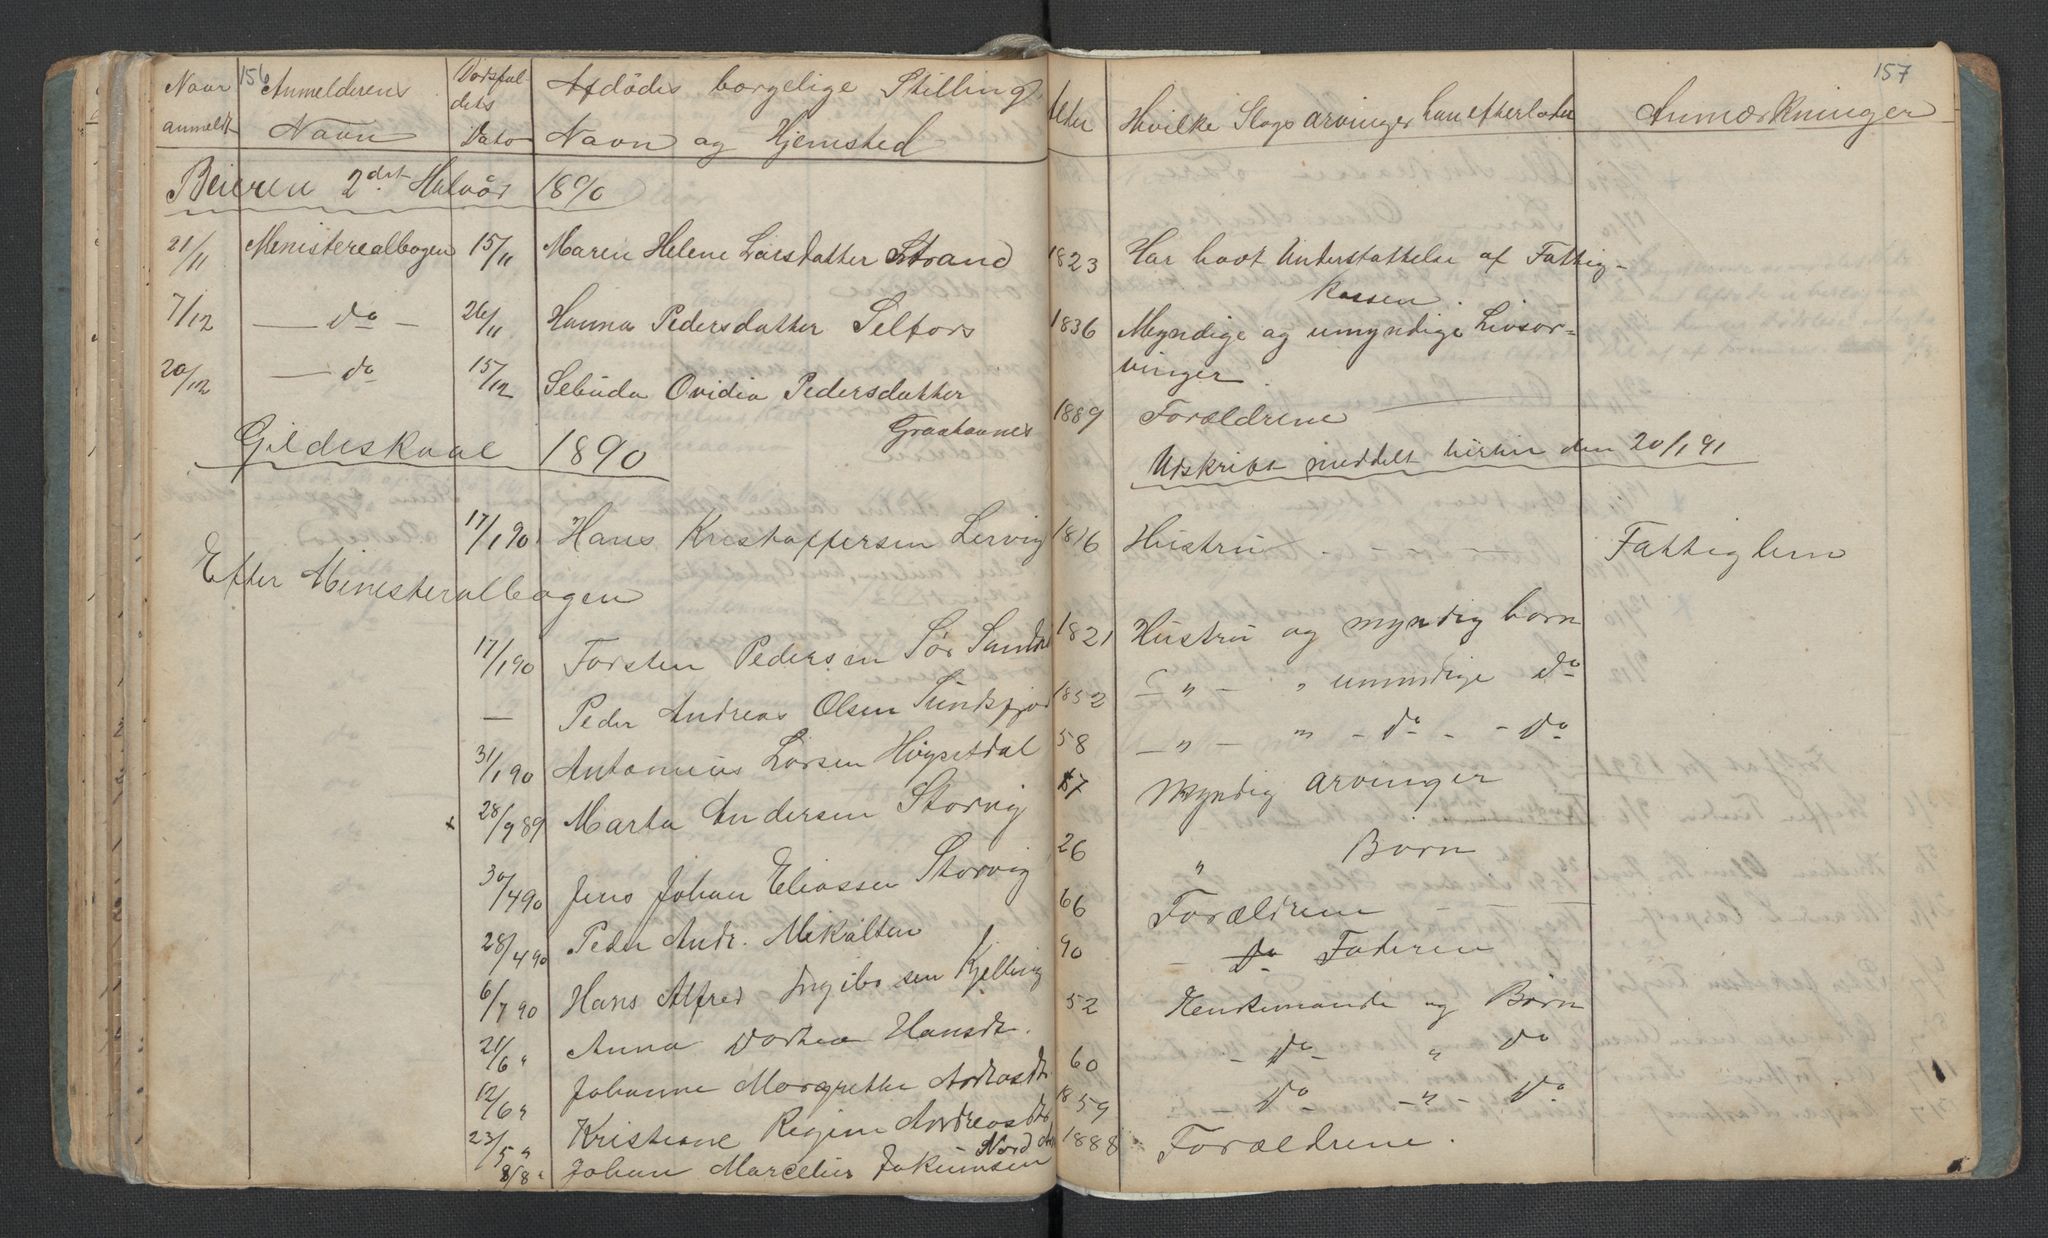 156
157
Naar anmeldt | Anmelderens Navn | Dødsfaldets Dato | Afdødes borgelige Stilling Navn og Hjemsted | Alder | Hvilke Slags arvinger han efterlader | Anmærkninger
Beieren 2det Halvår 1890
21/11 Ministerealbogen 15/11 Maren Helene Larsdatter Strand 1823 Har havt Understøttelse af Fattig-
Kassen.
7/12 — do — 26/11 Hanna Pedersdatter Selfors 1836 Myndige og umyndige Livsar-
vinger.
20/12 — do 15/12 Ovidia Pedersdatter 1889 Forældrene —
Graahaunes
Gildeskaal 1890
Udskrift meddelt hertil den 20/1 91
17/1 90 Hans Kristoffersen Lervig 1816 Hustru - - - Fattiglem
Efter Ministerialbogen
17/1 90 Torsten Pedersen Sør Sandnes 1821 Hustru og myndig børn
— Peder Andreas Olsen Sundsfjord 1852 — " — " umyndige do
31/1 90 Antonius Larsen Høgsetdal 58 — " — " - do - - do
x 28/9 89 Marta Andersen Storvig 57 Myndig arvinger
30/4 90 Jens Johan Eliassen Storvig 26 " Børn
28/4 90 Peder Andr. 66 Forældrene — — —
6/7 90 Hans Alfred Kjelling 90 - do Faderen
21/6 " Anna Dortea Hansdt. 52 Enkemand og Børn
12/6 " Johanne Margrethe Andreasdt. 60 - do - " do
23/5 " Kristiane Regine Andreasdt 1859 do - " - do
Nord
8/8 " Johan Marcelius Jakumsen 1888 Forældrene.